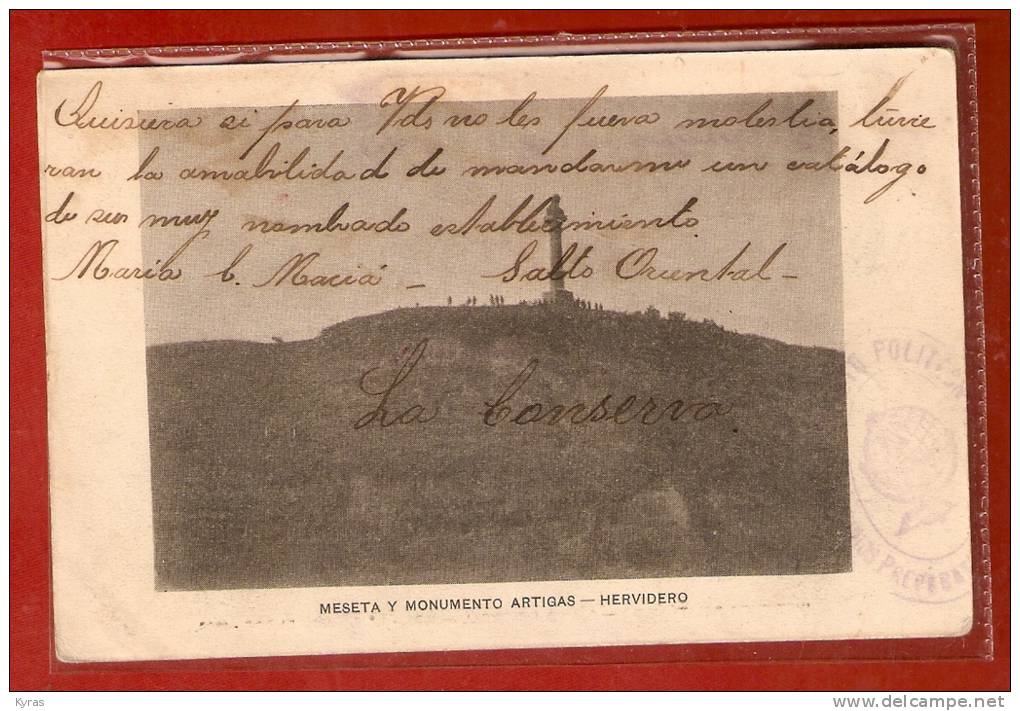 Quisiera si para Vds no les fuera molestia, tuvie
ran la amabilidad de mandarme un catálogo
de su muy nombrado establecimiento
Maria C. Maciá – Salto Oriental –
La Conserva
POLIT
PREPARA
MESETA Y MONUMENTO ARTIGAS — HERVIDERO
Kyras
www.delcampe.net